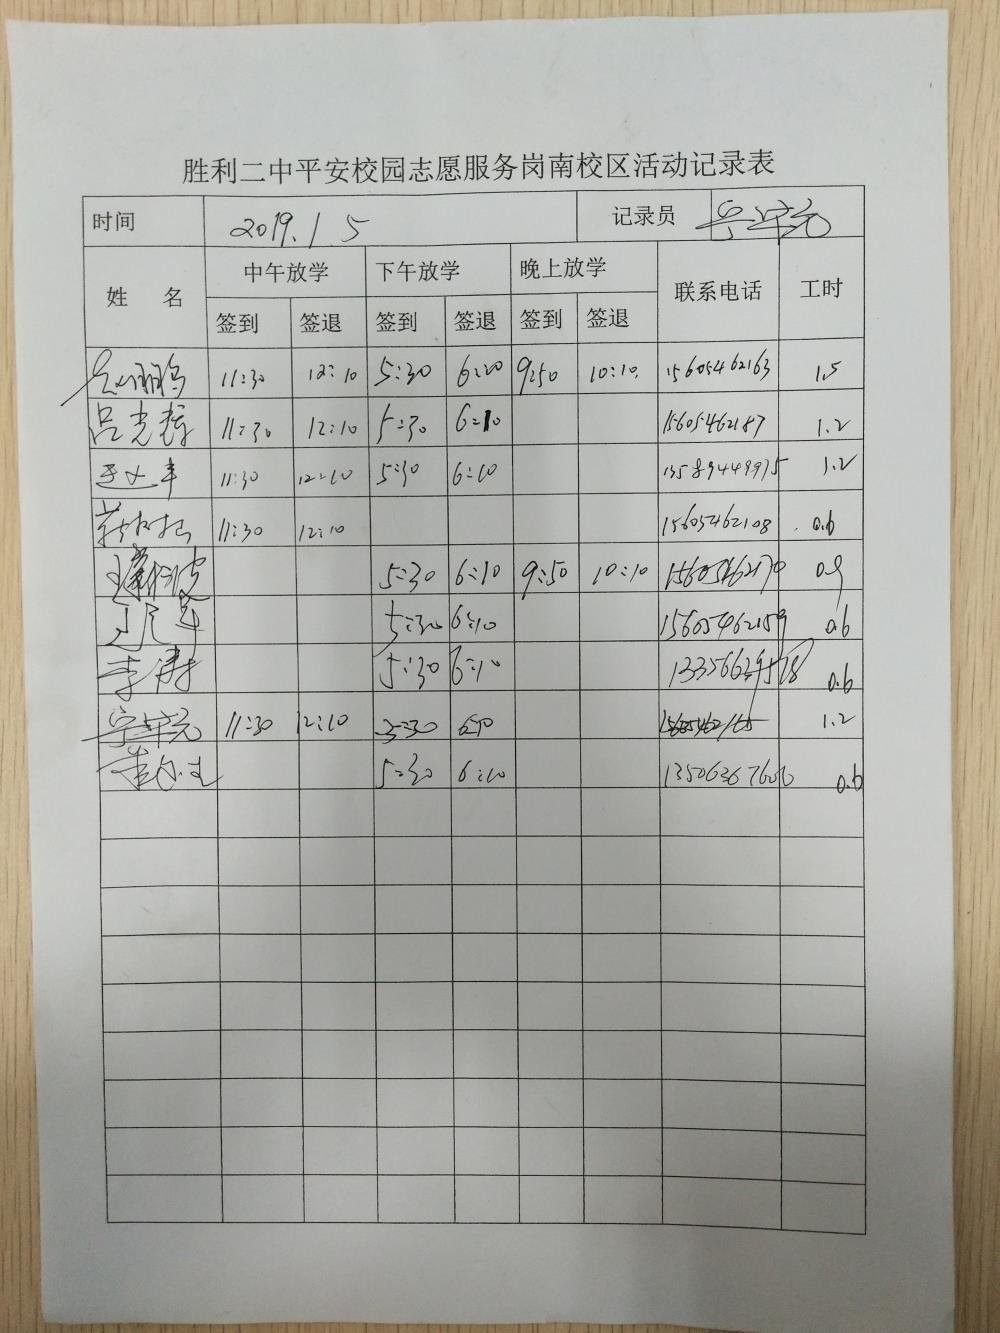 胜利二中平安校园志愿服务岗南校区活动记录表
时间 2019.1.5 记录员
姓 名 中午放学 下午放学 晚上放学 联系电话 工时
签到 签退 签到 签退 签到 签退
11:30 12:10 5:30 6:20 9:50 10:10. 15605462163 1.5
吕光辉 11:30 12:10 5:30 6:10 15605462187 1.2
11:30 12:10 5:30 6:10 13589449975 1.2
11:30 12:10 15605462108 0.6
5:30 6:10 9:50 10:10 15605462170 0.9
5:30 6:10 15605462159 0.6
李涛 5:30 6:10 0.6
11:30 12:10 5:30 6:10 1.2
5:30 6:10 0.6